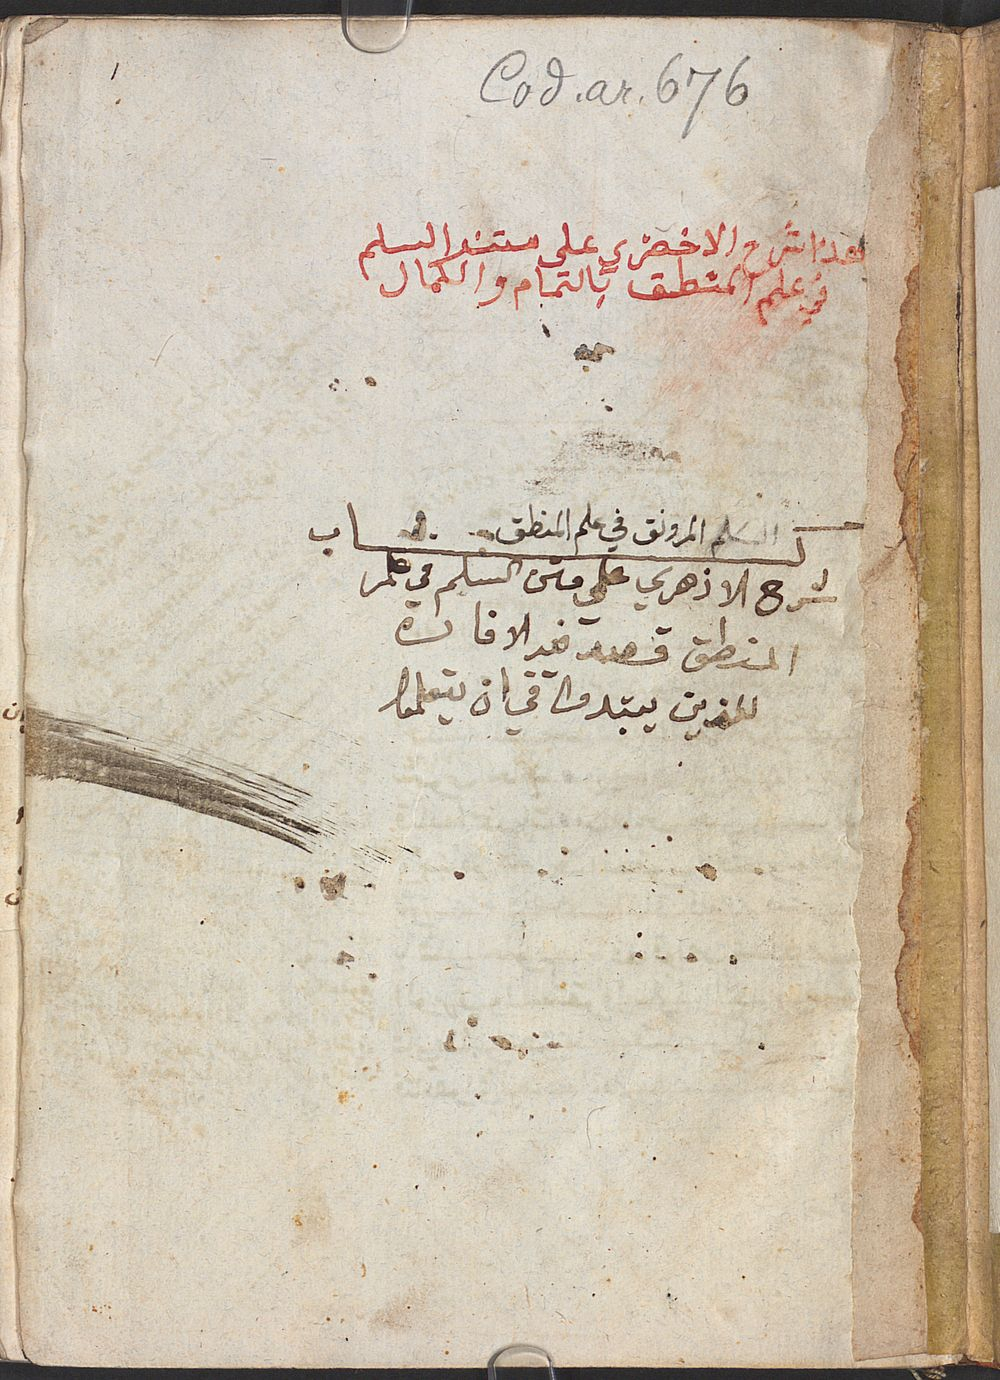 1
Cod. ar. 676
هذا شرح الاخضري على متنه السلم
في علم المنطق بالتمام والكمال
السلم المرونق في علم المنطق
كتاب
شرح الازهري على متن السلم في علم
المنطق قصد الافادة
للذين يبتدوا في ان يتعلموا